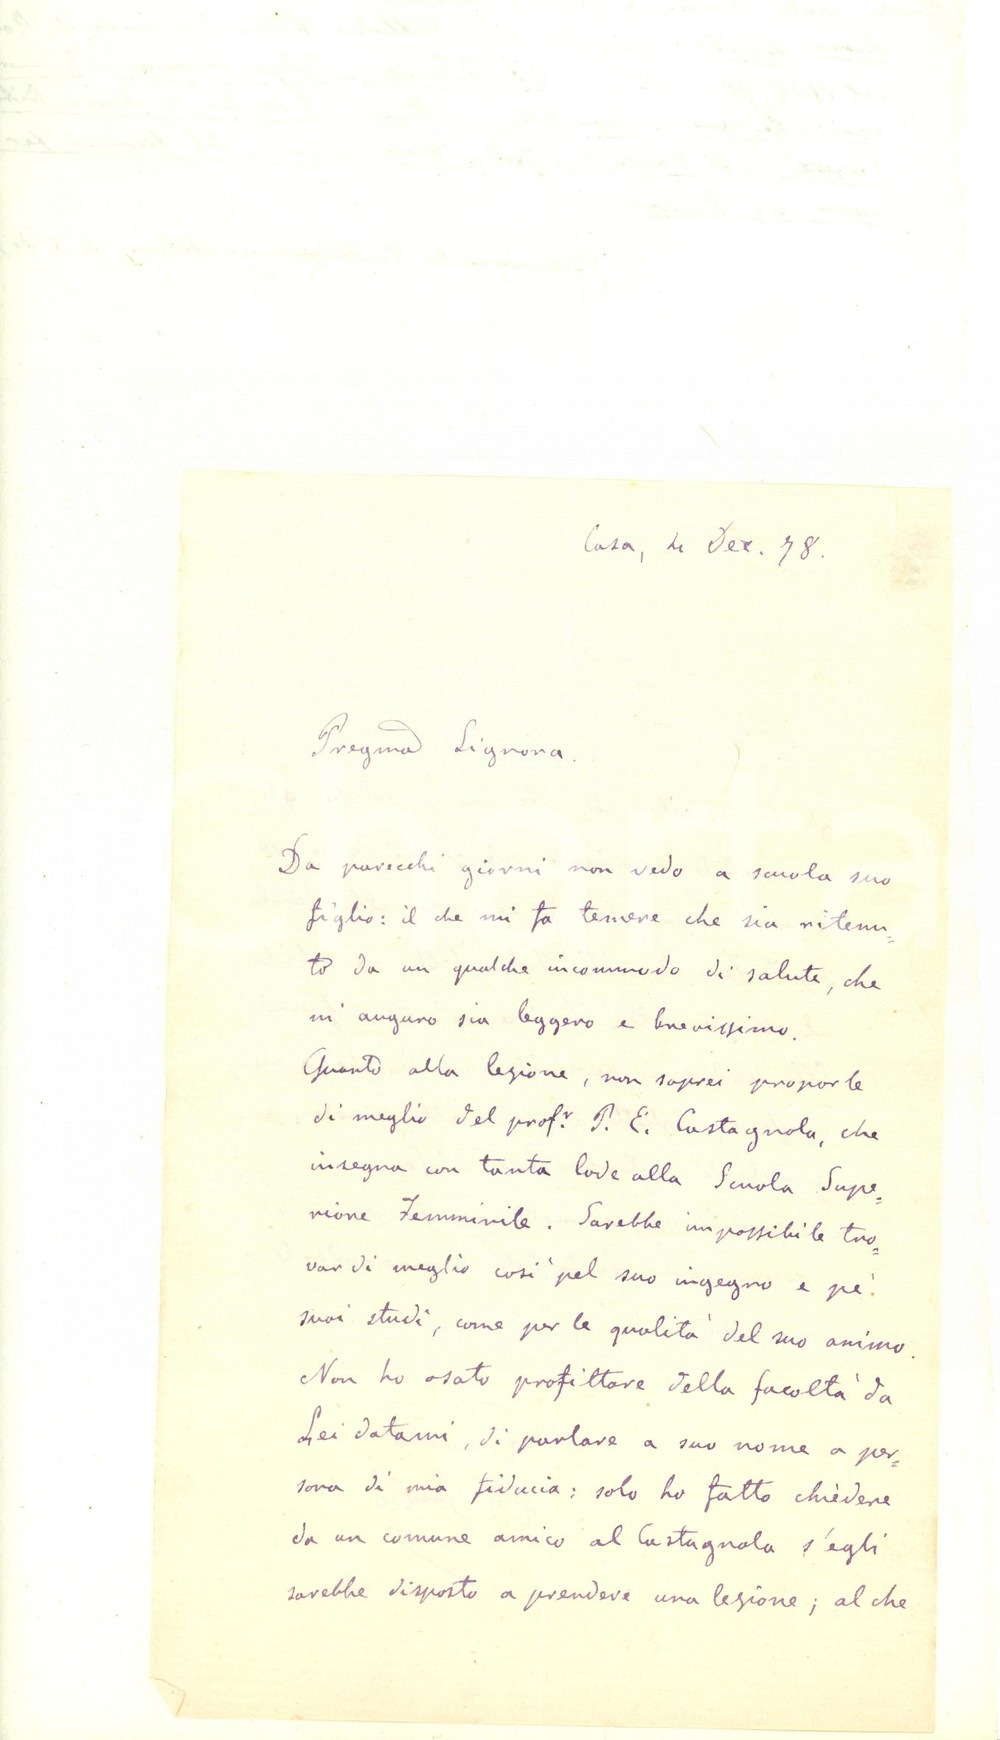 Casa, 4 Dec. 78.
Pregma Signora.
Da parecchi giorni non vedo a scuola suo
figlio: il che mi fa temere che sia ritenu=
to da un qualche incommodo di salute, che
m'auguro sia leggero e brevissimo.
Quanto alla lezione, non saprei proporle
di meglio del prof.r P. E. Castagnola, che
insegna con tanta lode alla Scuola Supe=
riore Femminile. Sarebbe impossibile tro=
var di meglio così pel suo ingegno e pe'
suoi studi, come per le qualità del suo animo.
Non ho osato profittare della facoltà da
Lei datami, di parlare a suo nome a per=
sona di mia fiducia: solo ho fatto chiedere
da un comune amico al Castagnola s'egli
sarebbe disposto a prendere una lezione; al che